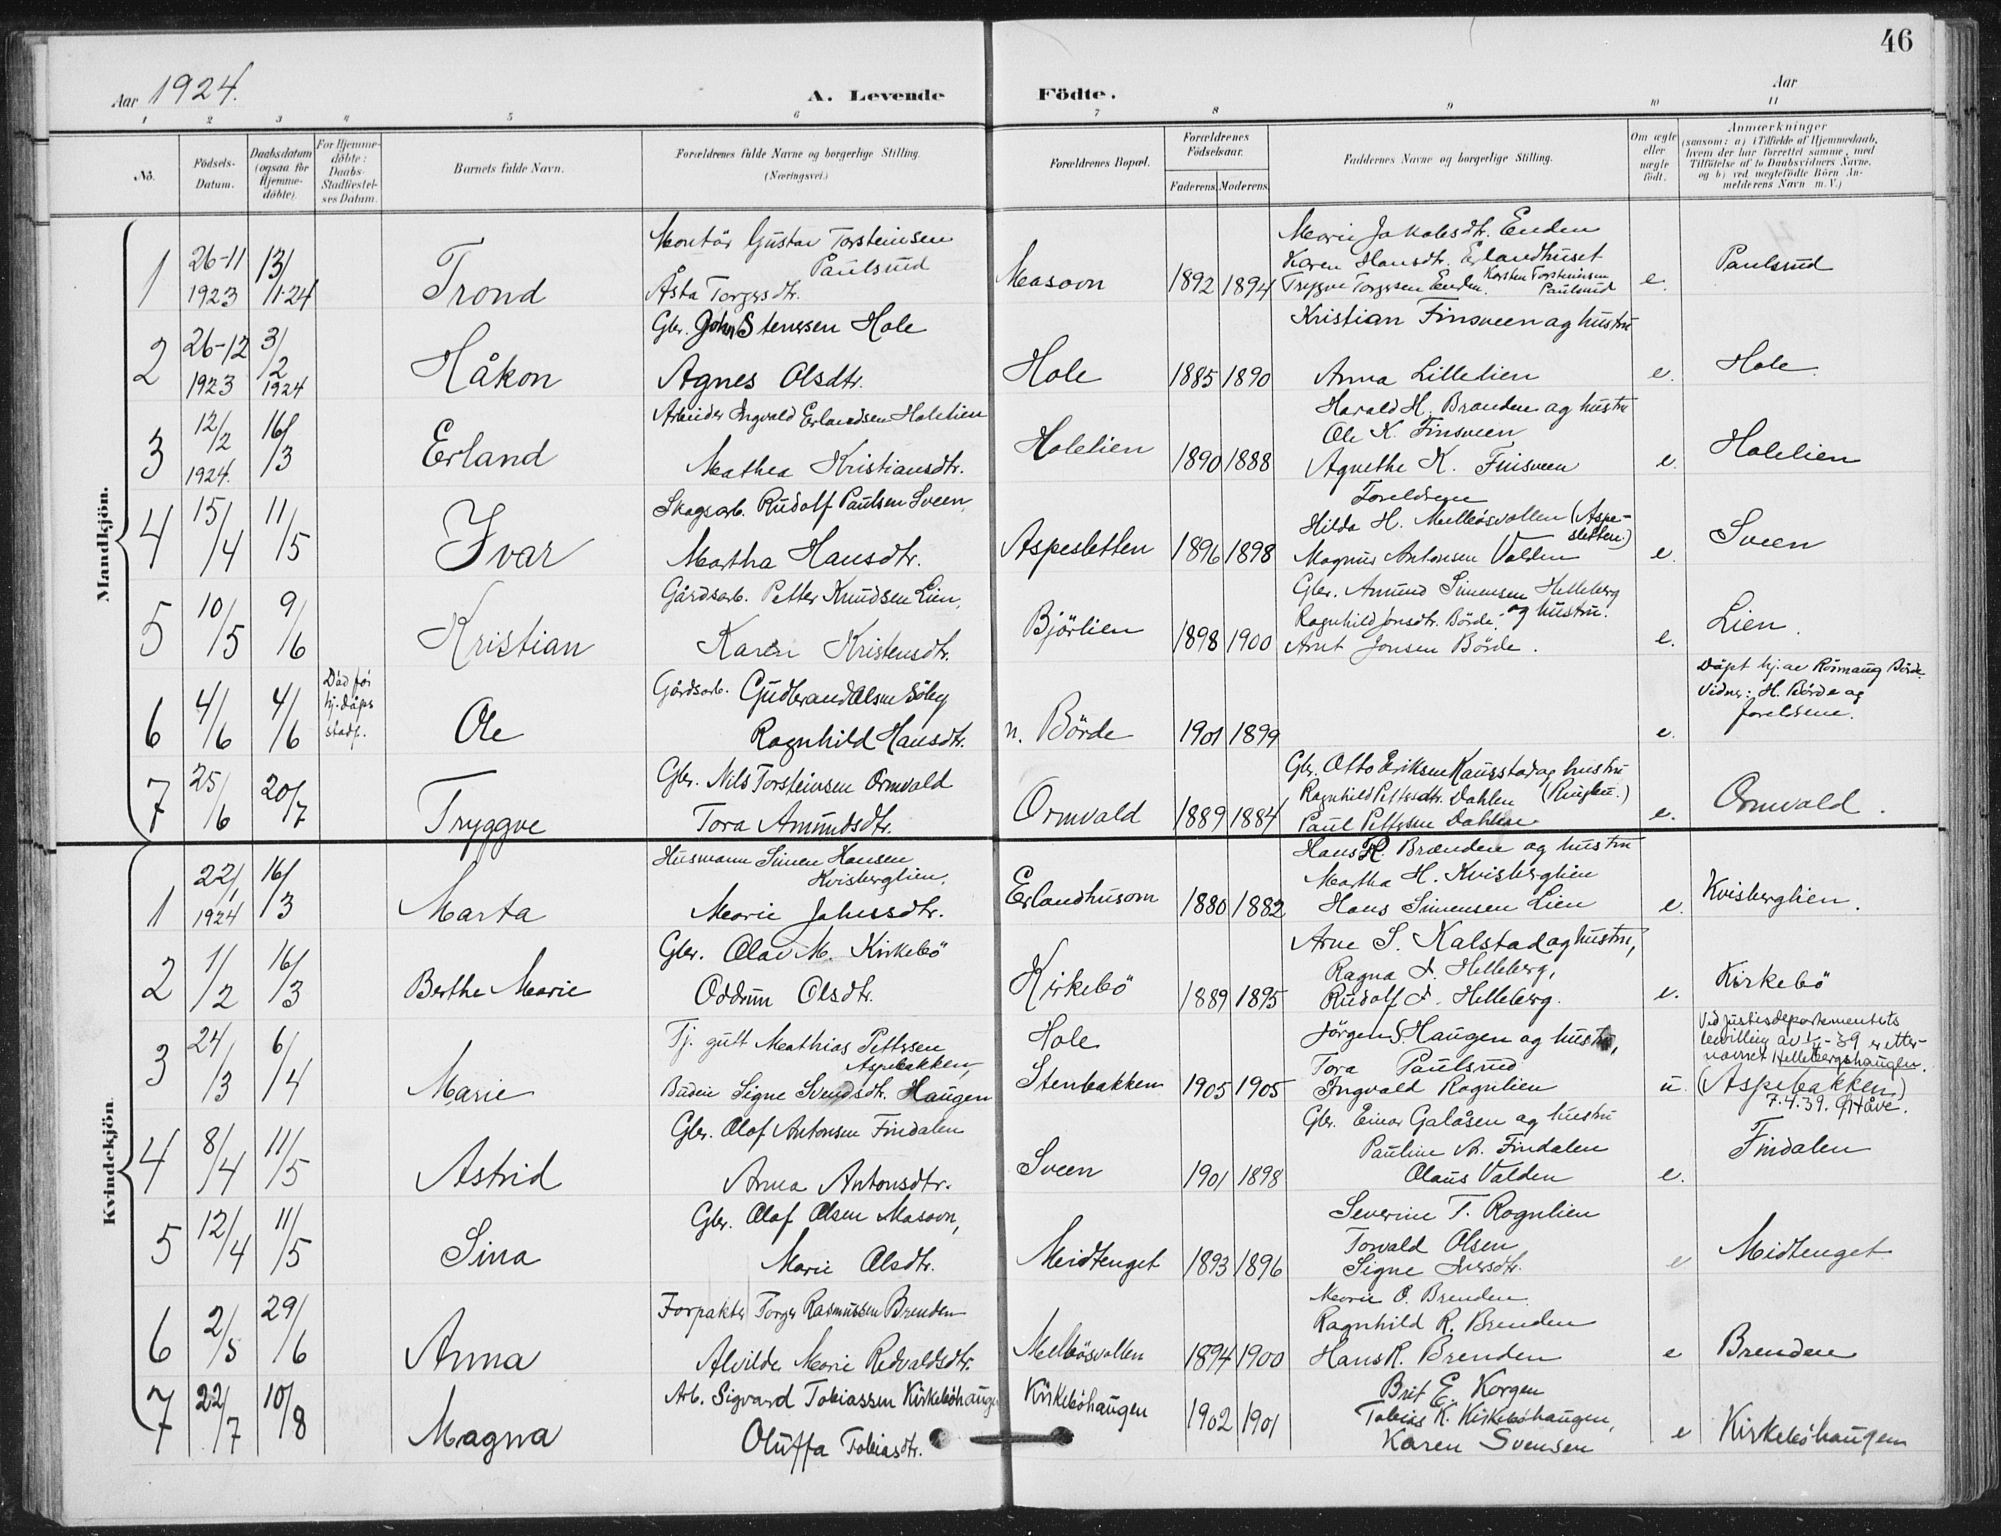 46
Aar 1924.
A. Levende Födte.
Aar
1 2 3 4 5 6 7 8 9 10 11
No.
Födsels-Datum.
Daabsdatum (ogsaa for Hjemme-döbte).
For Hjemme-döbte: Daabs-Stadfæstel-ses Datum.
Barnets fulde Navn.
Forældrenes fulde Navne og borgerlige Stilling.
(Næringsvei.)
Forældrenes Bopæl.
Forældrenes Födselsaar.
Faderens. Moderens.
Faddernes Navne og borgerlige Stilling.
Om ægte eller uægte födt.
Anmærkninger
(saasom: a) i Tilfælde af Hjemmedaab, hvem der har forrettet samme, med Tilföielse af to Daabsvidners Navne, og b) ved uægtefödte Börn An-melderens Navn m. V.)
Mandkjön.
1 26-11 1923 13/1 1-24 Trond
Montör Gustav Torsteinsen Paulsrud
Åsta Torgersdtr.
Masovn 1892 1894
Marie Jakobsdtr. Enden
Karen Hansdtr. Erlandhuset
Trygve Torgersen Enden. Karsten Torsteinsen Paulsrud
e. Paulsrud
2 26-12 1923 3/2 1924 Håkon
Gbr. John Stenersen Hole
Agnes Olsdtr.
Hole 1885 1890
Kristian Finsveen og hustru
Anna Lillelien
e. Hole.
3 12/2 1924. 16/3 Erland
Arbeider Ingvald Erlandsen Holelien
Mathea Kristiansdtr.
Holelien 1890 1888
Harald H. Branden og hustru
Ole K. Finsveen
Agnethe K. Finsveen
e. Holelien
4 15/4 11/5 Ivar
Skogsarb. Rudolf Paulsen Sveen,
Martha Hansdtr.
Aspesletten 1896 1898
Foreldrene
Hilda H. Melbøsvollen (Aspe-sletten)
Magnus Antonsen Valden
e. Sveen
5 10/5 9/6 Kristian
Gårdsarb. Petter Knudsen Lien,
Karen Kristensdtr.
Bjørlien 1898 1900
Gbr. Amund Simensen Helleberg og hustru.
Ragnhild Jonsdtr. Börde,
Arnt Jonsen Börde.
e. Lien.
6 4/6 4/6 Död för hj.dåps stadf. Ole
Gårdsarb. Gudbrand Olsen Söby
Ragnhild Hansdtr.
n. Börde 1901 1899
e.
Döpt hj. av Rönnaug Börde.
Vidner: H. Börde og foreldrene.
7 25/6 20/7 Tryggve
Gbr. Nils Torsteinsen Ormvald
Tora Amundsdtr.
Ormvald 1889 1884
Gbr. Otto Eriksen Kaurstad og hustru
Ragnhild Pettersdtr. Dahlen (Ringbu.)
Paul Pettersen Dahlen
e. Ormvald.
Kvindekjön.
1 22/1 1924 16/3 Marta
Husmann Simen Hansen Kvisberglien,
Marie Johnsdtr.
Erlandhusom 1880 1882
Hans H. Brænden og hustru
Martha H. Kvisberglien
Hans Simensen Lien
e. Kvisberglien.
2 1/2 16/3 Berthe Marie
Gbr. Olav M. Kirkebö
Oddrun Olsdtr.
Kirkebö 1889 1895
Arne S. Kalstad og hustru,
Ragna J. Helleberg,
Rudolf J. Helleberg.
e. Kirkebö
3 24/3 6/4 Marie
Tj. gutt Mathias Pettersen Aspebakken,
Budeie Signe Svendsdtr. Haugen
Hole
Stenbakken 1905 1905
Jörgen S. Haugen og hustru,
Tora Paulsrud
Ingvald Rognlien
u.
Ved Justisdepartementets bevilling av 1/4-39 er etter-navnet Hellebergshaugen.
(Aspebakken)
7.4.39. GHåve.
4 8/4 11/5 Astrid
Gbr. Olof Antonsen Findalen
Anna Antonsdtr.
Sveen 1901 1898
Gbr. Einar Galåsen og hustru
Pauline A. Findalen
Olaus Valden
e. Findalen
5 12/4 11/5 Sina
Gbr. Olof Olsen Masovn,
Marie Olsdtr.
Meidtenget 1893 1896
Severine T. Rognlien
Torvald Olsen
Signe Iversdtr.
e Midtenget
6 2/5 29/6 Anna
Forpakter Torger Rasmussen Brenden
Alvilde Marie Redvaldsdtr.
Melbösvollen 1894 1900
Marie O. Brenden.
Ragnhild R. Brenden
Hans R. Brenden
e Brenden
7 22/7 10/8 Magna
Arb. Sigvard Tobiassen Kirkeböhaugen
Oluffa Tobiasdtr.
Kirkeböhaugen 1902 1901
Brit E. Korgen
Tobias K. Kirkeböhaugen,
Karen Svensen
e Kirkeböhaugen